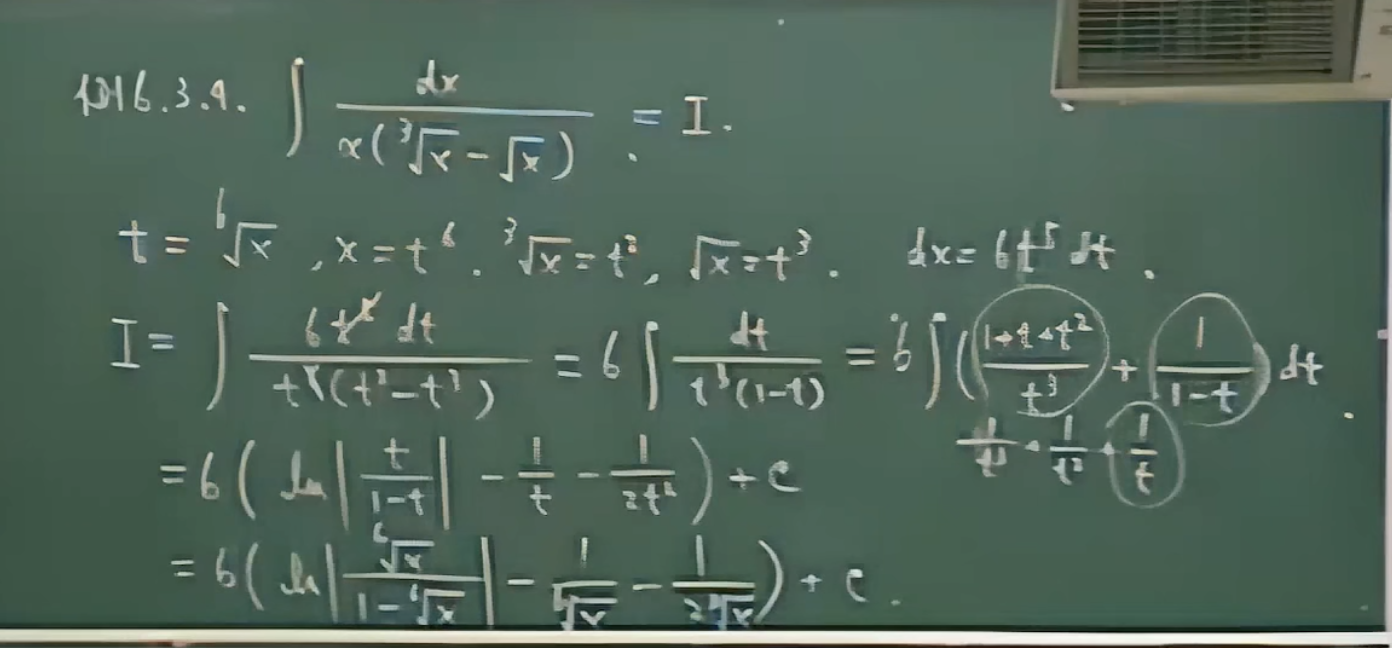 例6.3.9. ∫ dx / (x(∛x - √x)) = I.
t = ⁶√x, x = t⁶. ∛x = t², √x = t³. dx = 6t⁵ dt.
I = ∫ 6t⁵ dt / (t⁶(t² - t³)) = 6 ∫ dt / (t³(1-t)) = 6 ∫ ( (1+t+t²)/t³ + 1/(1-t) ) dt
1/t³ + 1/t² + 1/t
= 6 ( ln | t/(1-t) | - 1/t - 1/(2t²) ) + c
= 6 ( ln | ⁶√x / (1-⁶√x) | - 1/⁶√x - 1/(2∛x) ) + c.